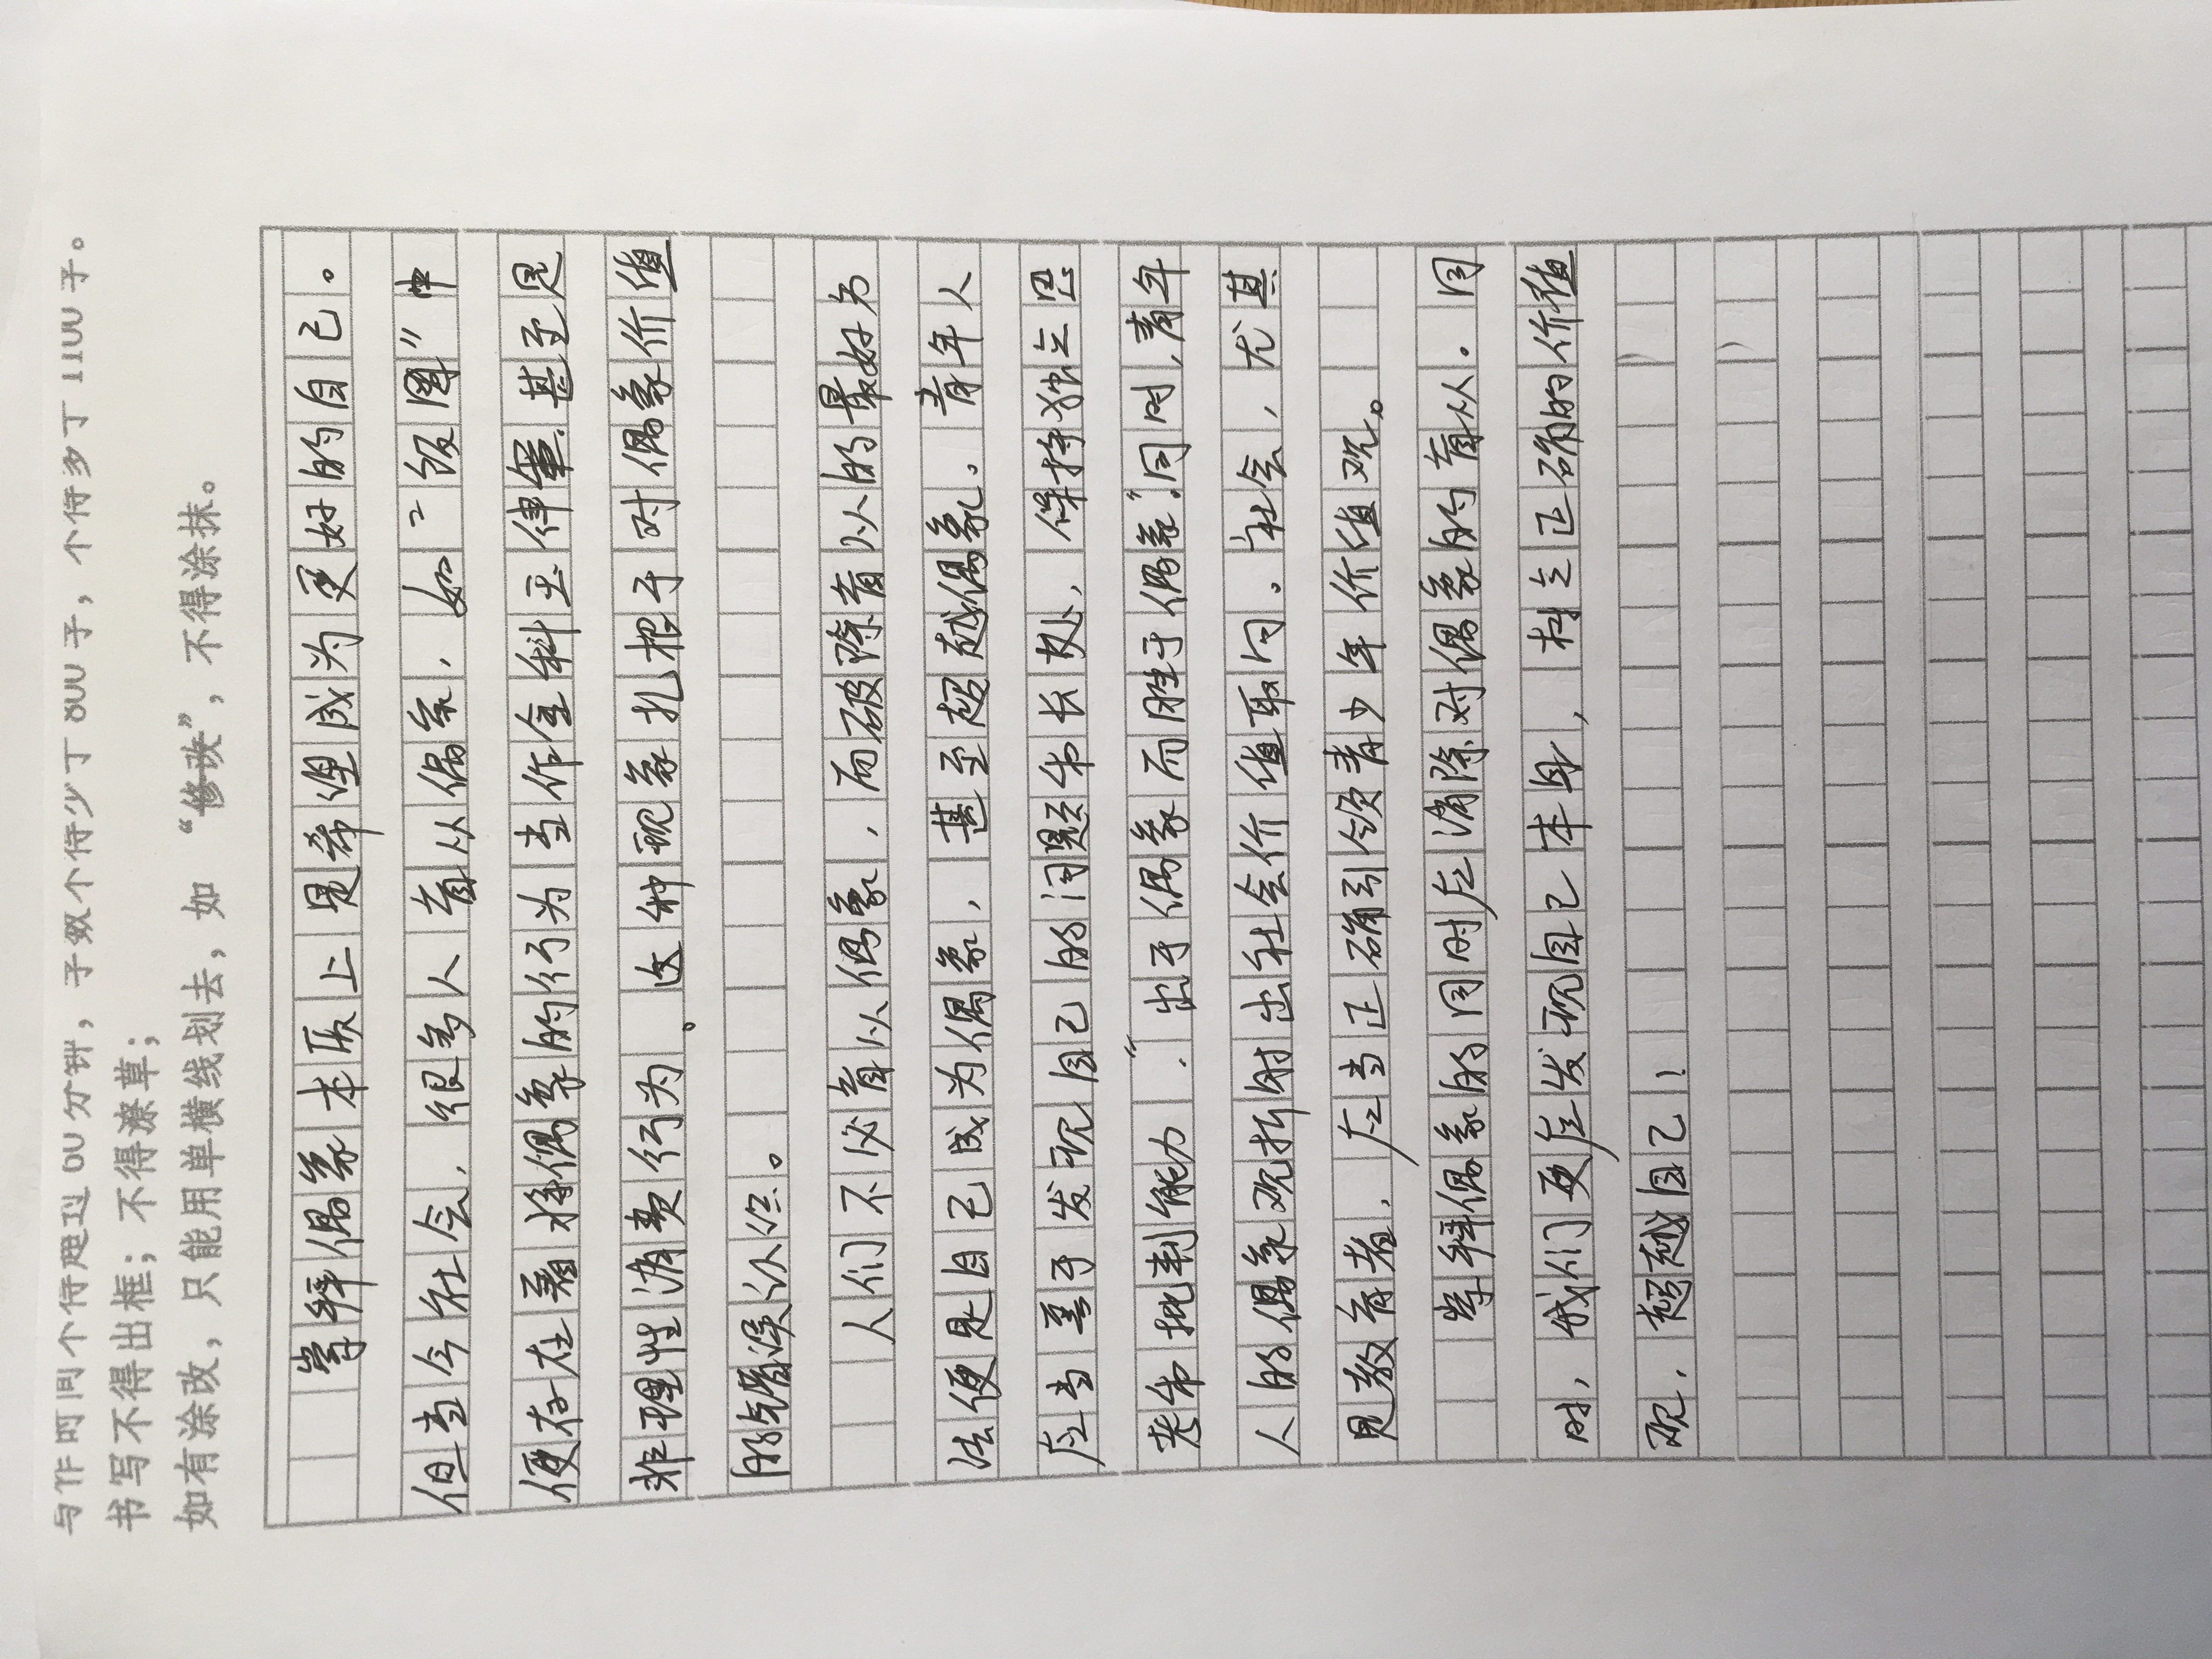 写作时间不得超过60分钟，字数不得少于800字，不得多于1100字。
书写不得出框；不得潦草；
如有涂改，只能用单横线划去，如 “修改”，不得涂抹。
崇拜偶象本质上是希望成为更好的自己。
但当今社会，很多人盲从偶象，如“饭圈”中
便存在着将偶象的行为当作金科玉律，甚至是
非理性消费行为。这种现象扎根于对偶象价值
的错误认知。
人们不必盲从偶象，而破除盲从的最好办
法便是自己成为偶象，甚至超越偶象。青年人
应当善于发现自己的问题和长处，保持独立思
考和批判能力，“出于偶象而胜于偶象”。同时，青年
人的偶象观折射出社会价值取向。社会，尤其
是教育者，应当正确引领青少年价值观。
崇拜偶象的同时应消除对偶象的盲从。同
时，我们更应发现自己本身，树立正确的价值
观，超越自己！